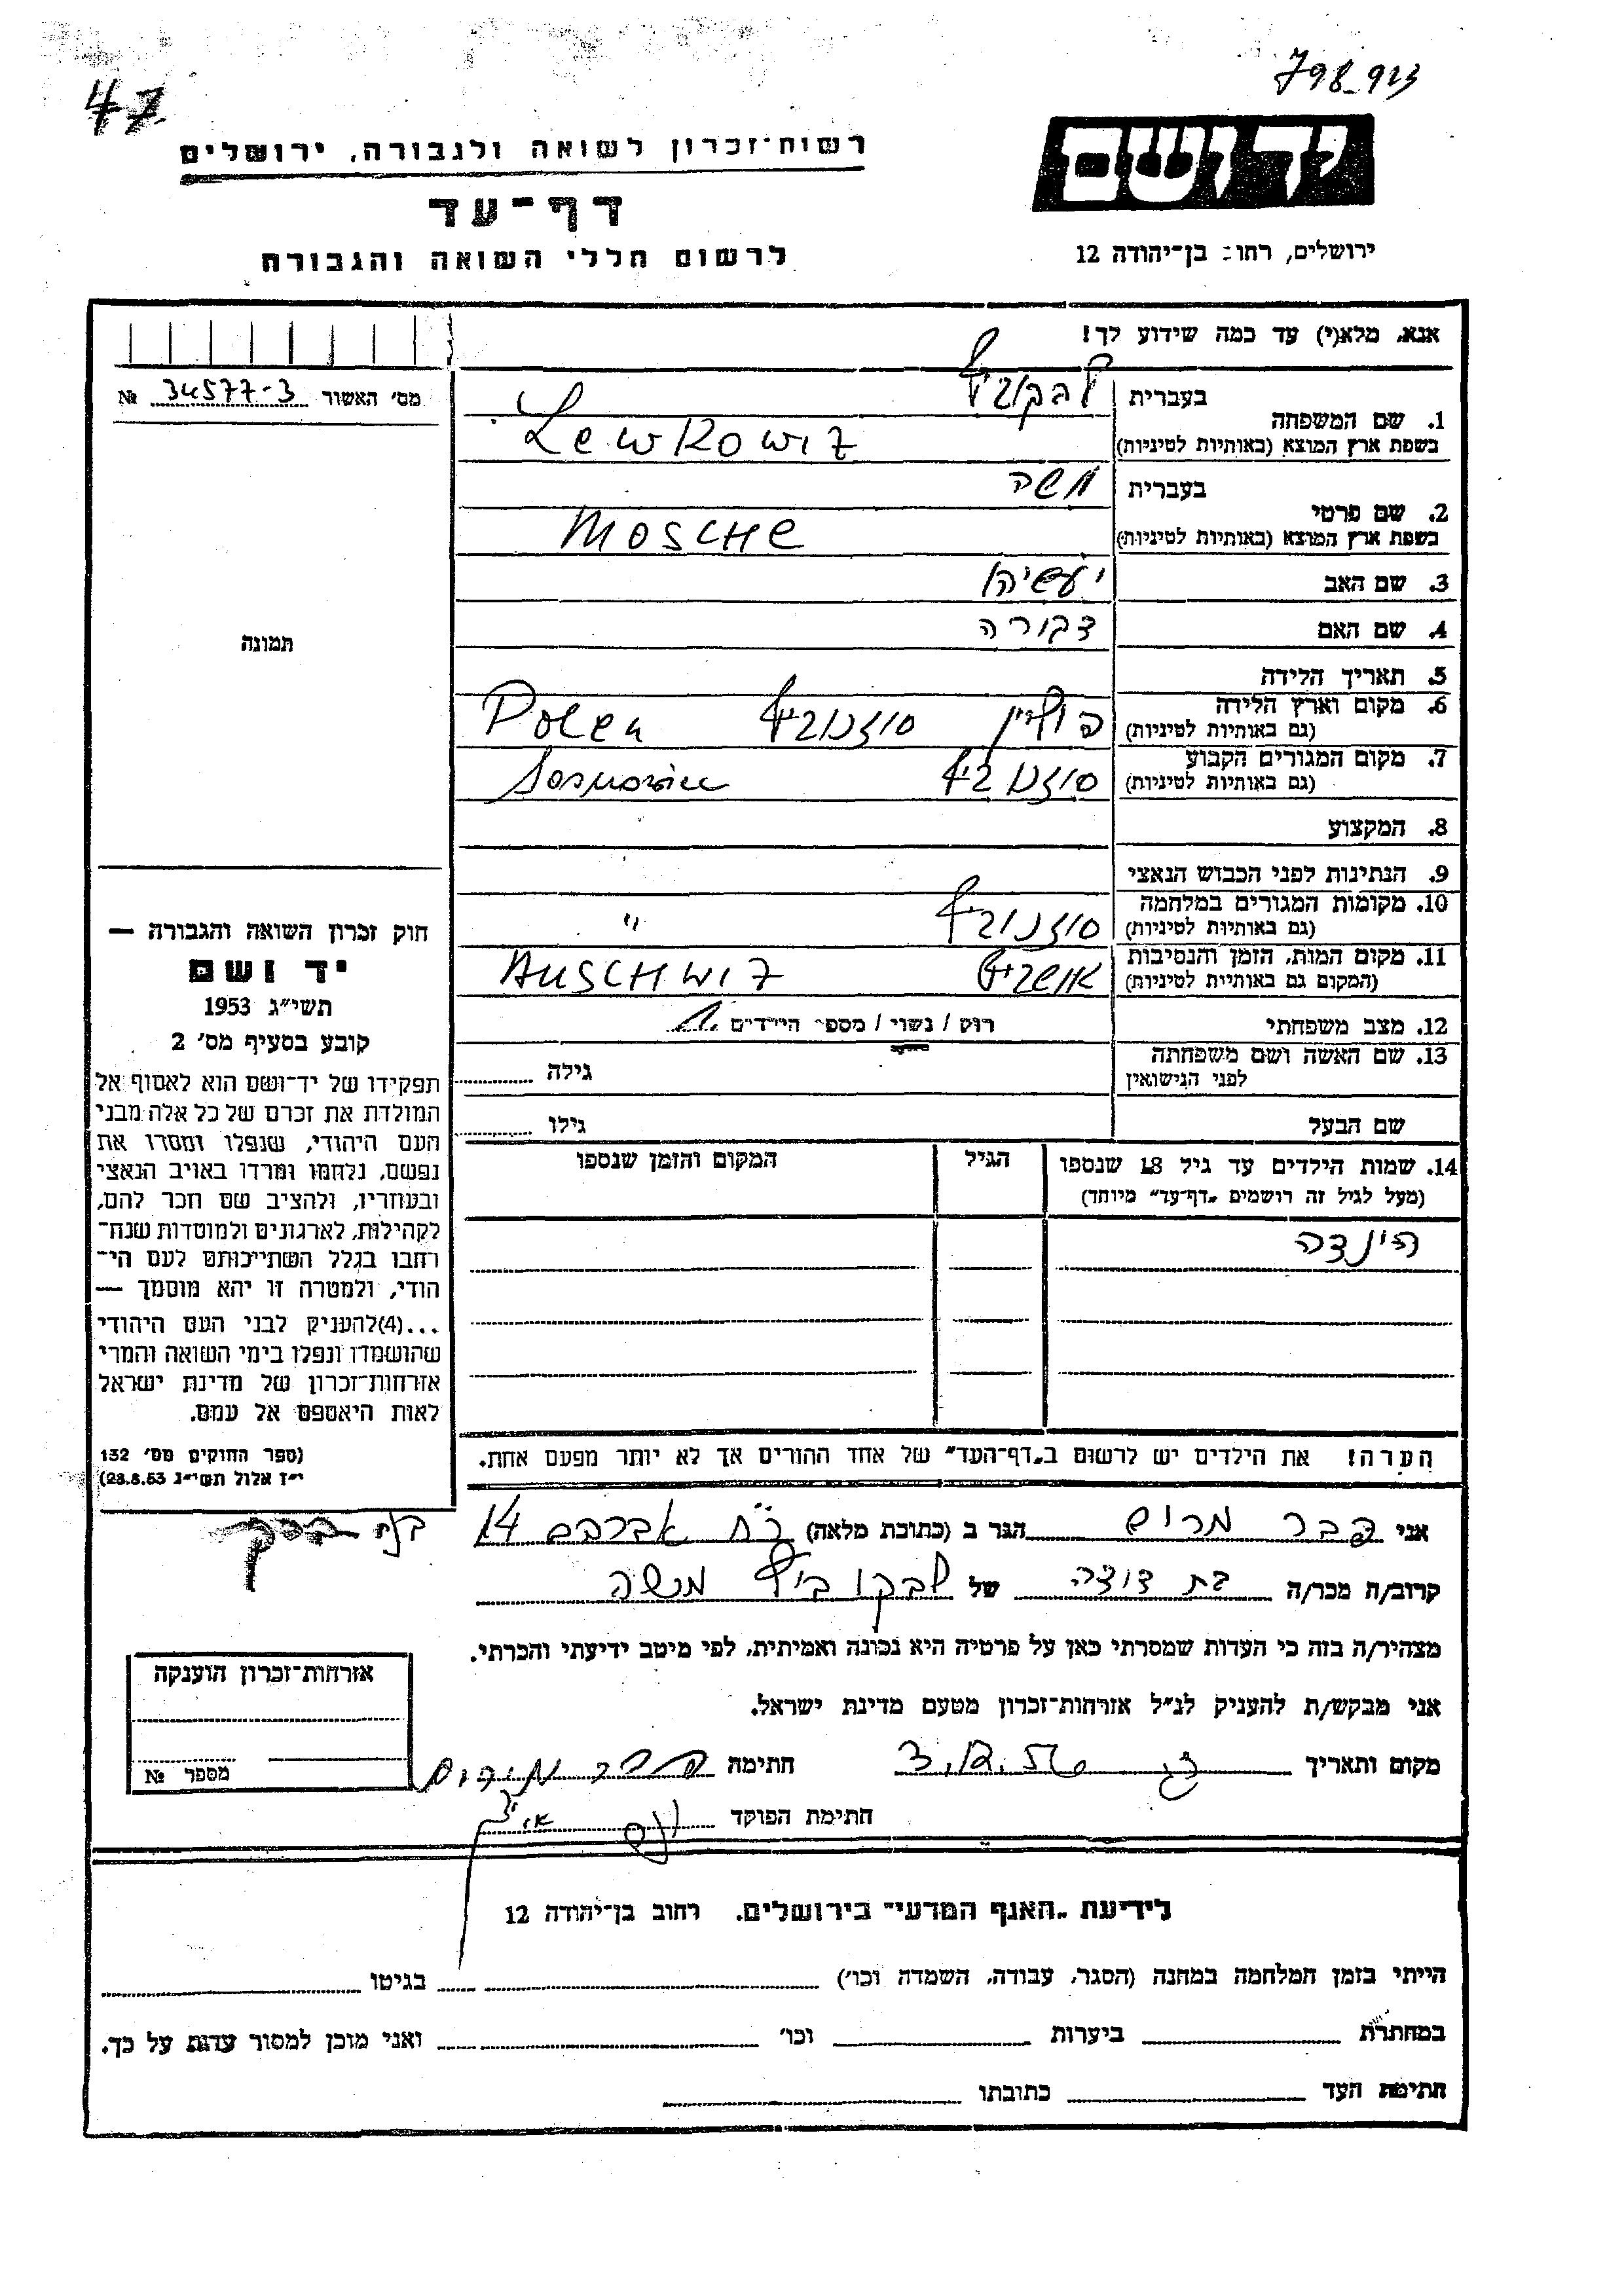 47
798-923
רשות־זכרון לשואה ולגבורה, ירושלים
דף־עד
לרשום חללי השואה והגבורה
יד ושם
ירושלים, רחוב בן־יהודה 12
אנא, מלא(י) עד כמה שידוע לך!
מס׳ האשור 34577-3 №
תמונה
1. שם המשפחה בעברית לבקוביץ
בשפת ארץ המוצא (באותיות לטיניות) Lewkowiz
2. שם פרטי בעברית משה
בשפת ארץ המוצא (באותיות לטיניות) MOSCHE
3. שם האב ישעיהו
4. שם האם דבורה
5. תאריך הלידה
6. מקום וארץ הלידה (גם באותיות לטיניות) פולין סוזנוביץ Polen
7. מקום המגורים הקבוע (גם באותיות לטיניות) סוזנוביץ
8. המקצוע
9. הנתינות לפני הכבוש הנאצי
10. מקומות המגורים במלחמה (גם באותיות לטיניות) סוזנוביץ "
11. מקום המות, הזמן והנסיבות (המקום גם באותיות לטיניות) אושביץ AUSCHWIZ
12. מצב משפחתי רוק / נשוי / מספר הילדים 1
13. שם האשה ושם משפחתה לפני הנישואין גילה
שם הבעל גילו
14. שמות הילדים עד גיל 18 שנספו הגיל המקום והזמן שנספו
(מעל לגיל זה רושמים „דף־עד״ מיוחד)
הינדה
הערה! את הילדים יש לרשום ב„דף־העד״ של אחד ההורים אך לא יותר מפעם אחת.
חוק זכרון השואה והגבורה —
יד ושם
תשי״ג 1953
קובע בסעיף מס׳ 2
תפקידו של יד־ושם הוא לאסוף אל
המולדת את זכרם של כל אלה מבני
העם היהודי, שנפלו ומסרו את
נפשם, נלחמו ומרדו באויב הנאצי
ובעוזריו, ולהציב שם וזכר להם,
לקהילות, לארגונים ולמוסדות שנח־
רחבו בגלל השתייכותם לעם הי־
הודי, ולמטרה זו יהא מוסמך —
...(4)להעניק לבני העם היהודי
שהושמדו ונפלו בימי השואה והמרי
אזרחות־זכרון של מדינת ישראל
לאות היאספם אל עמם.
(ספר החוקים מס׳ 132
י״ז אלול תשי״ג 28.8.53)
אני מרום הגר ב (כתובת מלאה) אברבם 14 בני ברק
קרוב/ה מכר/ה בת דודה של לבקוביץ משה
מצהיר/ה בזה כי העדות שמסרתי כאן על פרטיה היא נכונה ואמיתית, לפי מיטב ידיעתי והכרתי.
אני מבקש/ת להעניק לנ״ל אזרחות־זכרון מטעם מדינת ישראל.
מקום ותאריך חתימה
חתימת הפוקד
אזרחות־זכרון הוענקה
מספר №
לידיעת „האגף המדעי״ בירושלים, רחוב בן־יהודה 12
הייתי בזמן המלחמה במחנה (הסגר, עבודה, השמדה וכו׳) בגיטו
במחתרת ביערות וכו׳ ואני מוכן למסור עדות על כך.
חתימת העד כתובתו